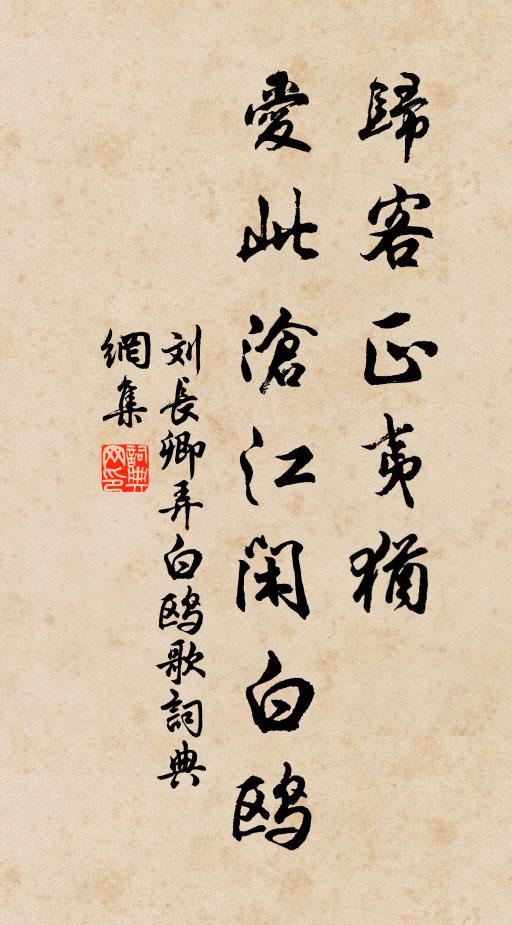 歸客正夷猶
愛此滄江閑白鷗
刘長卿弄白鷗歌詞典
網集
詞典網印